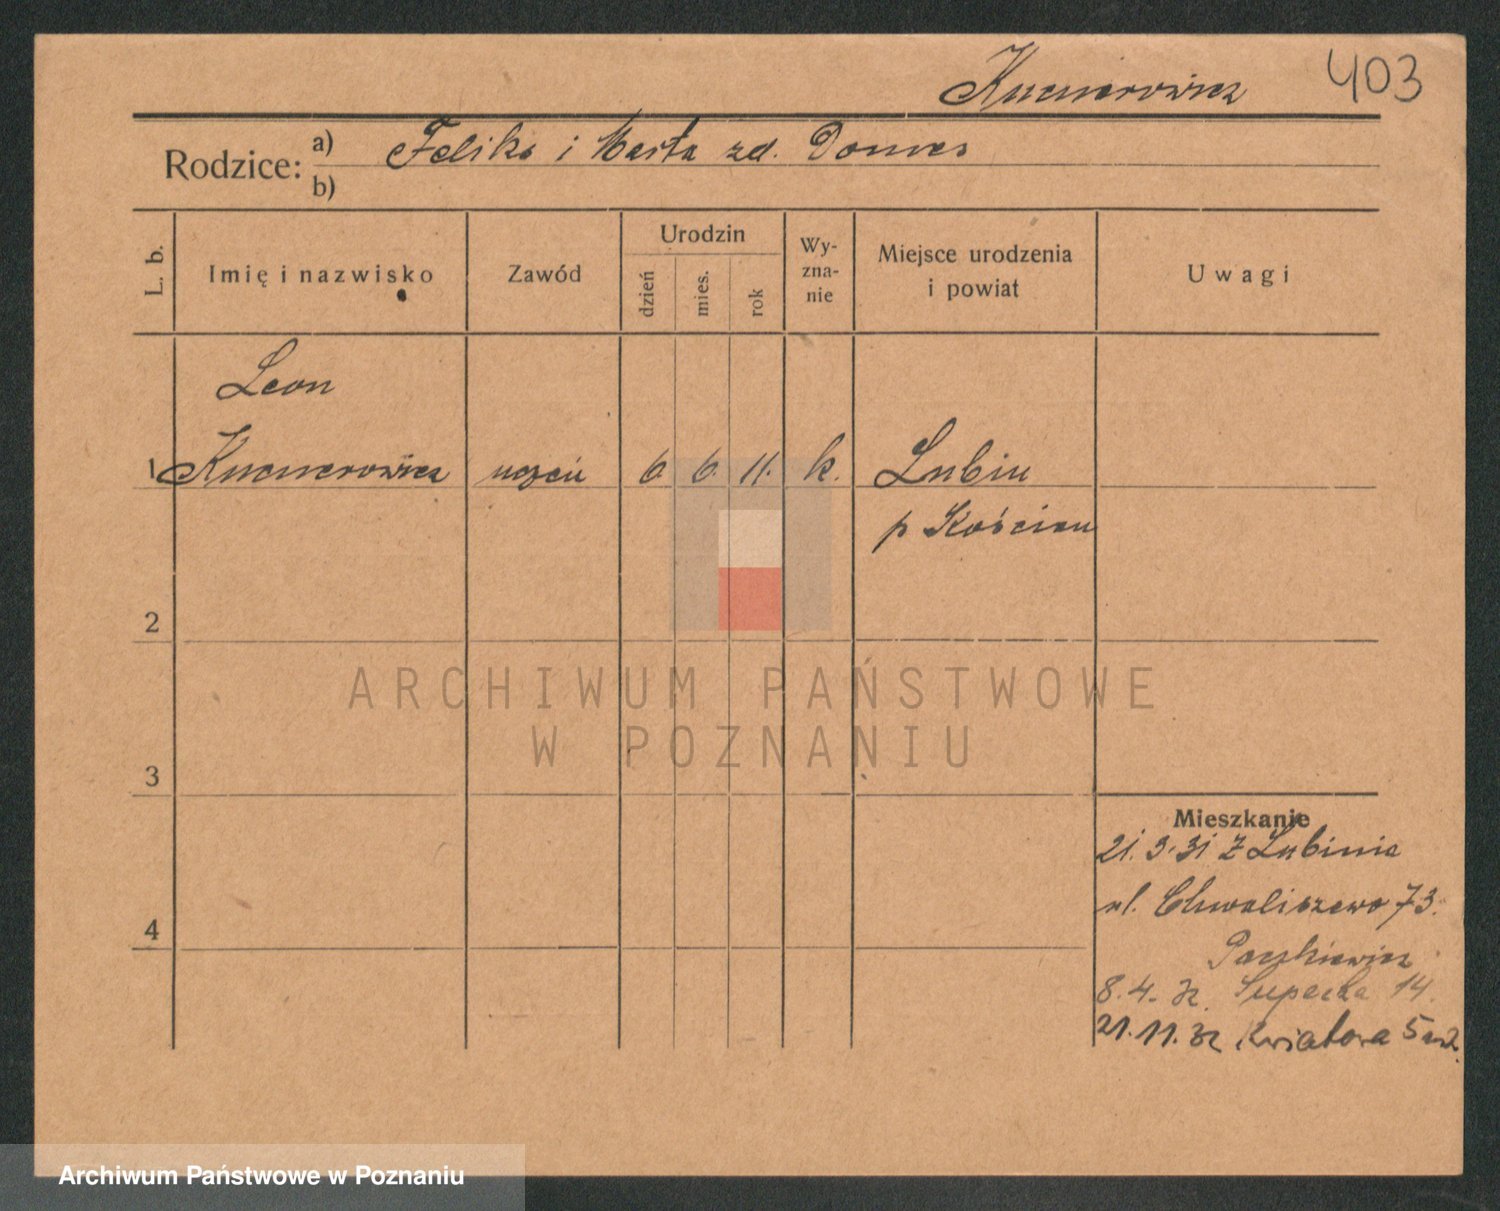 Kucnerowicz 403
Rodzice: a) Feliks i Marta zd. Domes
b)
L. b. Imię i nazwisko Zawód Urodzin dzień mies. rok Wy-zna-nie Miejsce urodzenia i powiat Uwagi
Leon
1 Kucnerowicz uczeń 6 6. 11. k. Lubiń
p Kościan
2
ARCHIWUM PAŃSTWOWE
W POZNANIU
3
Mieszkanie
21. 3. 31 z Lubinia
ul. Chwaliszewo 73.
4
8. 4. 32. 14.
21. 11. 32 Kwiatowa 5
Archiwum Państwowe w Poznaniu